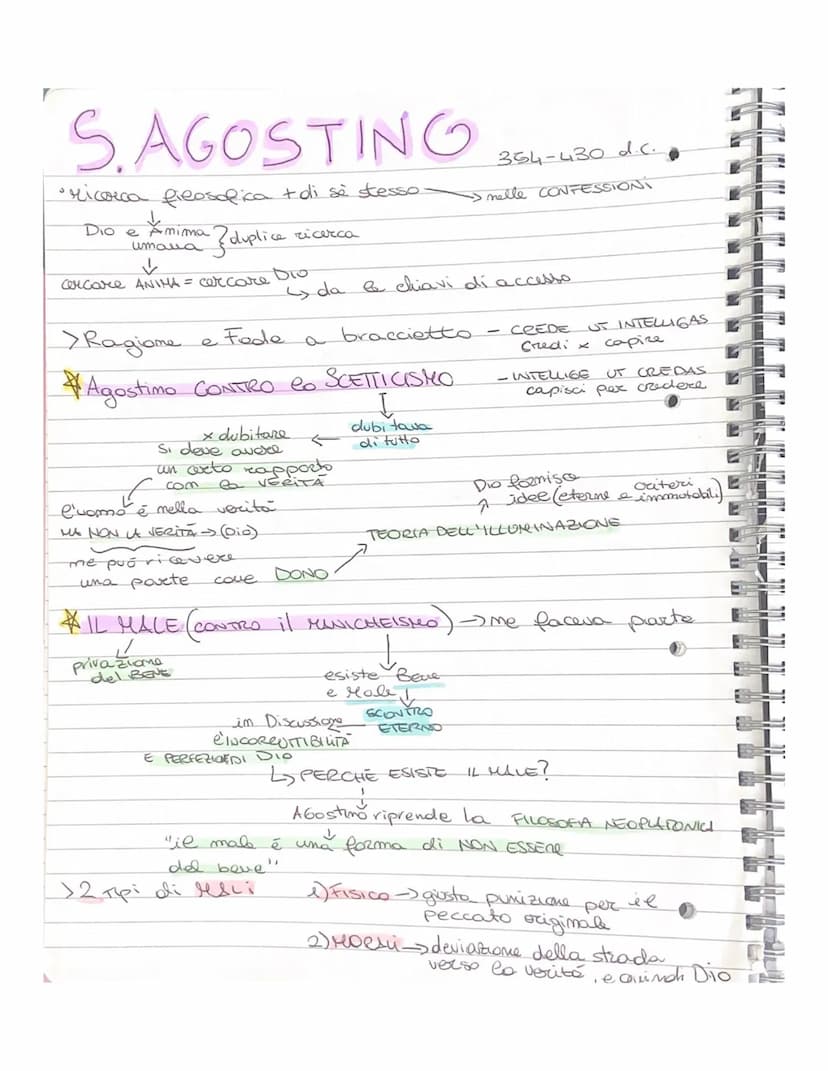 S. AGOSTINO 354-430 d.C.
• ricerca filosofica + di sè stesso → nelle CONFESSIONI
↓
Dio e Anima umana } duplice ricerca
↓
cercare ANIMA = cercare Dio
↳ da le chiavi di accesso
> Ragione e Fede a braccietto - CREDE UT INTELLIGAS
Credi x capire
☆ Agostino CONTRO lo SCETTICISMO - INTELLIGE UT CREDAS
capisci per credere
↓
dubitava
di tutto
←
x dubitare
si deve avere
un certo rapporto
con la VERITÀ
l'uomo è nella verità
MA NON LA VERITÀ → (Dio)
ne può ricevere
una parte come DONO
TEORIA DELL'ILLUMINAZIONE
Dio fornisce criteri
idee (eterne e immutabili)
☆ IL MALE (CONTRO il MANICHEISMO) → ne faceva parte
privazione
del BENE
esiste Bene
e Male
SCONTRO
ETERNO
in Discussione
l'INCORRUTTIBILITÀ
E PERFEZIONE DI DIO
↳ PERCHÉ ESISTE IL MALE?
↓
Agostino riprende la FILOSOFIA NEOPLATONICA
↓
"il male è una forma di NON ESSERE
del bene"
> 2 Tipi di MALI 1) FISICO → giusta punizione per il
peccato originale
2) MORALI → deviazione della strada
verso la verità, e quindi Dio